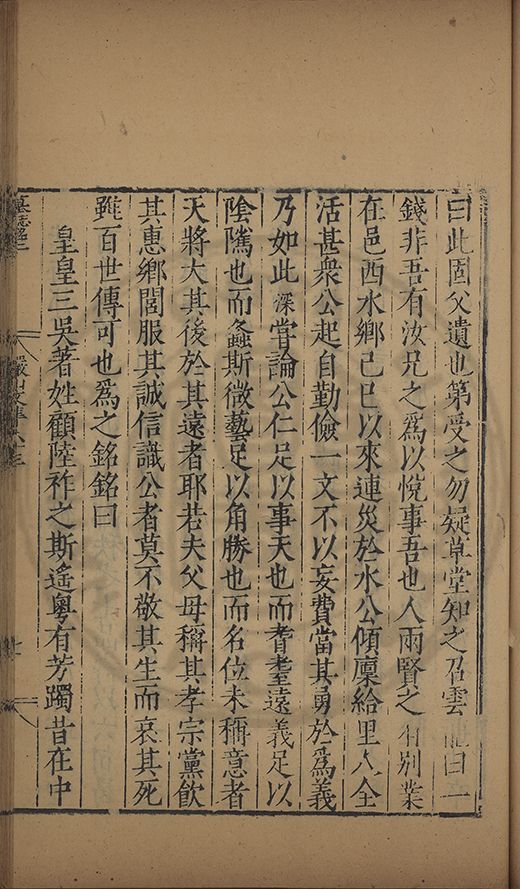 曰此固父遺也第受之勿疑草堂知之召雲曰二
錢非吾有汝兄之為以悅事吾也人兩賢之有別業
在邑西水鄉己巳以來連災於水公傾廩給里人全
活甚衆公起自勤儉一文不以妄費當其勇於爲義
乃如此深嘗論公仁足以事天也而耆耋遠義足以
陰隲也而螽斯微藝足以角勝也而名位未稱意者
天將大其後於其遠者耶若夫父母稱其孝宗黨飲
其惠鄉閭服其誠信識公者莫不敬其生而哀其死
雖百世傳可也爲之銘銘曰
皇皇三吳著姓顧陸祚之斯遙粤有芳躅昔在中